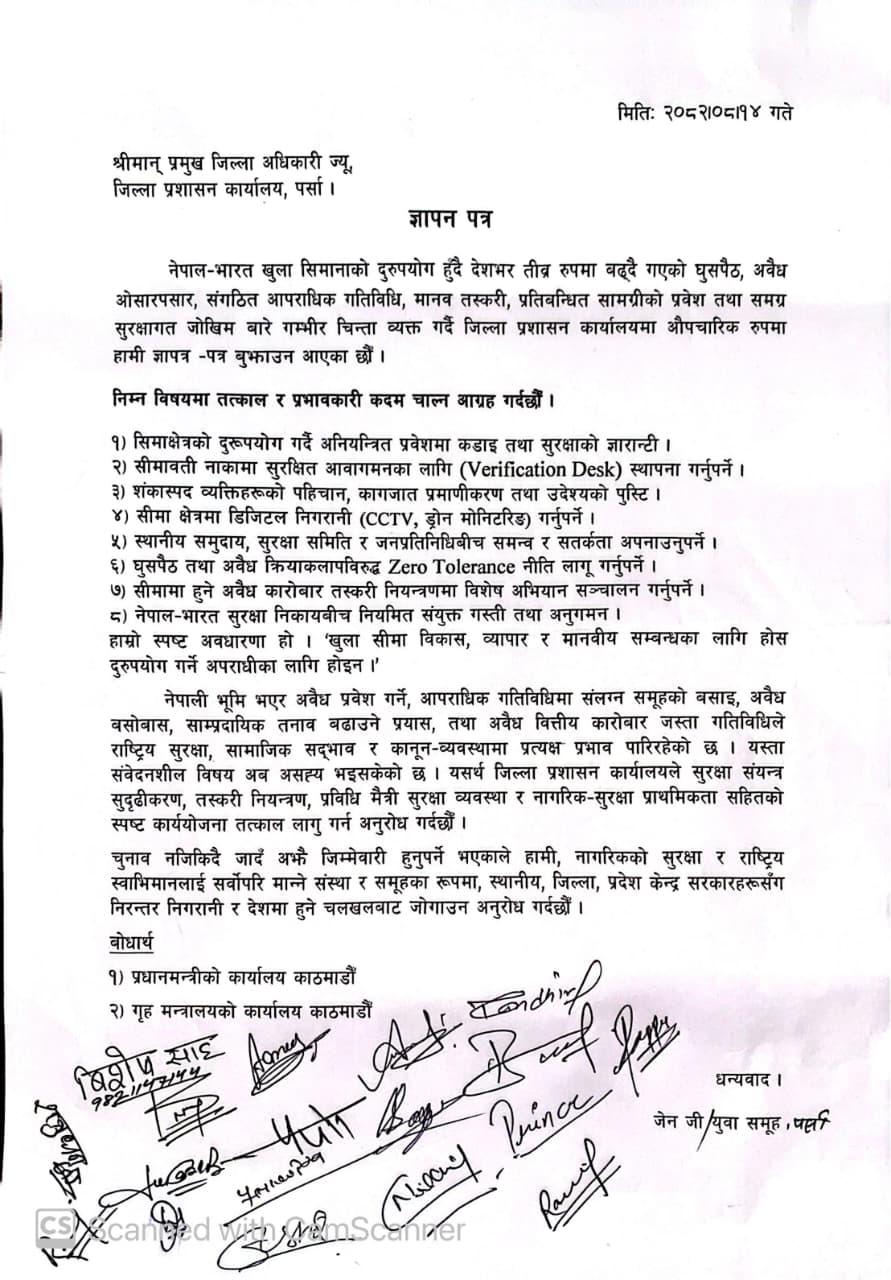 मितिः २०८२।०८।१४ गते
श्रीमान् प्रमुख जिल्ला अधिकारी ज्यू,
जिल्ला प्रशासन कार्यालय, पर्सा ।
ज्ञापन पत्र
नेपाल-भारत खुला सिमानाको दुरुपयोग हुँदै देशभर तीव्र रुपमा बढ्दै गएको घुसपैठ, अवैध
ओसारपसार, संगठित आपराधिक गतिविधि, मानव तस्करी, प्रतिबन्धित सामग्रीको प्रवेश तथा समग्र
सुरक्षागत जोखिम बारे गम्भीर चिन्ता व्यक्त गर्दै जिल्ला प्रशासन कार्यालयमा औपचारिक रुपमा
हामी ज्ञापत्र -पत्र बुझाउन आएका छौं ।
निम्न विषयमा तत्काल र प्रभावकारी कदम चाल्न आग्रह गर्दछौं ।
१) सिमाक्षेत्रको दुरूपयोग गर्दै अनियन्त्रित प्रवेशमा कडाइ तथा सुरक्षाको ज्ञारान्टी ।
२) सीमावती नाकामा सुरक्षित आवागमनका लागि (Verification Desk) स्थापना गर्नुपर्ने ।
३) शंकास्पद व्यक्तिहरूको पहिचान, कागजात प्रमाणीकरण तथा उदेश्यको पुस्टि ।
४) सीमा क्षेत्रमा डिजिटल निगरानी (CCTV, ड्रोन मोनिटरिङ) गर्नुपर्ने ।
५) स्थानीय समुदाय, सुरक्षा समिति र जनप्रतिनिधिबीच समन्व र सतर्कता अपनाउनुपर्ने ।
६) घुसपैठ तथा अवैध क्रियाकलापविरुद्ध Zero Tolerance नीति लागू गर्नुपर्ने ।
७) सीमामा हुने अवैध कारोबार तस्करी नियन्त्रणमा विशेष अभियान सञ्चालन गर्नुपर्ने ।
८) नेपाल-भारत सुरक्षा निकायबीच नियमित संयुक्त गस्ती तथा अनुगमन ।
हाम्रो स्पष्ट अवधारणा हो । 'खुला सीमा विकास, व्यापार र मानवीय सम्बन्धका लागि होस
दुरुपयोग गर्ने अपराधीका लागि होइन ।'
नेपाली भूमि भएर अवैध प्रवेश गर्ने, आपराधिक गतिविधिमा संलग्न समूहको बसाइ, अवैध
बसोबास, साम्प्रदायिक तनाव बढाउने प्रयास, तथा अवैध वित्तीय कारोबार जस्ता गतिविधिले
राष्ट्रिय सुरक्षा, सामाजिक सद्‌भाव र कानून-व्यवस्थामा प्रत्यक्ष प्रभाव पारिरहेको छ । यस्ता
संवेदनशील विषय अब असह्य भइसकेको छ । यसर्थ जिल्ला प्रशासन कार्यालयले सुरक्षा संयन्त्र
सुदृढीकरण, तस्करी नियन्त्रण, प्रविधि मैत्री सुरक्षा व्यवस्था र नागरिक-सुरक्षा प्राथमिकता सहितको
स्पष्ट कार्ययोजना तत्काल लागु गर्न अनुरोध गर्दछौं ।
चुनाव नजिकिदै जादँ अझै जिम्मेवारी हुनुपर्ने भएकाले हामी, नागरिकको सुरक्षा र राष्ट्रिय
स्वाभिमानलाई सर्वोपरि मान्ने संस्था र समूहका रूपमा, स्थानीय, जिल्ला, प्रदेश केन्द्र सरकारहरूसँग
निरन्तर निगरानी र देशमा हुने चलखलबाट जोगाउन अनुरोध गर्दछौं ।
बोधार्थ
१) प्रधानमन्त्रीको कार्यालय काठमाडौं
२) गृह मन्त्रालयको कार्यालय काठमाडौं
साह
धन्यवाद ।
जेन जी/युवा समूह, पर्सा
Prince
CS Scanned with CamScanner